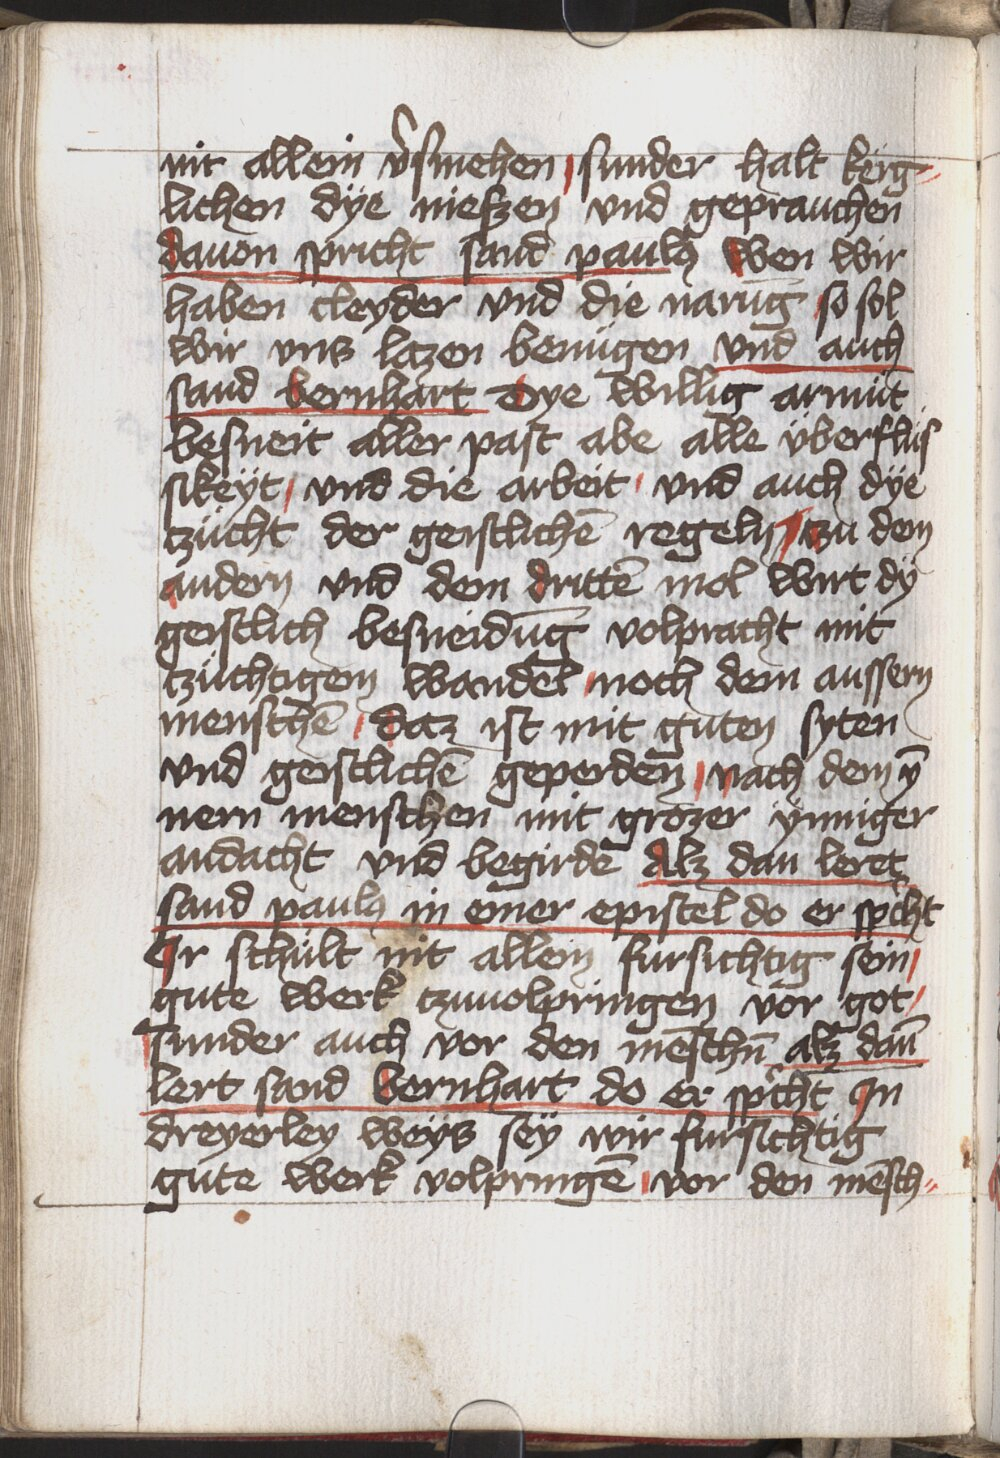 nit allein v̉smehen / sunder halt kerg⸗
lichen dÿe nieszen vnd geprauchen
dauon spricht sand paulꝰ Wen wir
haben cleyder vnd die narūg so sol
wir vns lazen benügen vnd auch
sand bernhart Dye willig armüt
besneit aller past abe alle überflüs
sikeÿt / vnd die arbeit / vnd auch dÿe
tzücht der geistlichē regeln / tzu dem
andern vnd dem drittē mol wirt dÿ
geistlich besneidūg volpracht mit
tzüchtigem wandel / noch dem aussern
menschē / daz ist mit guten syten
vnd geistlichē geperden̄ / nach dem ȳ
nern menschen mit grozer ynniger
andacht vnd begirde Alz dan leret
sand paulꝰ in einer epistel do er sp̄cht
Ir schült nit allein fursichtig sein /
gute werk tzuuolpringen vor got /
sunder auch vor den mēschn̄ alz dan̄
lert sand bernhart do er sp̄cht In
dreyerley weys seÿ wir fursichtig
gute werk volpringē / vor den mēsch⸗